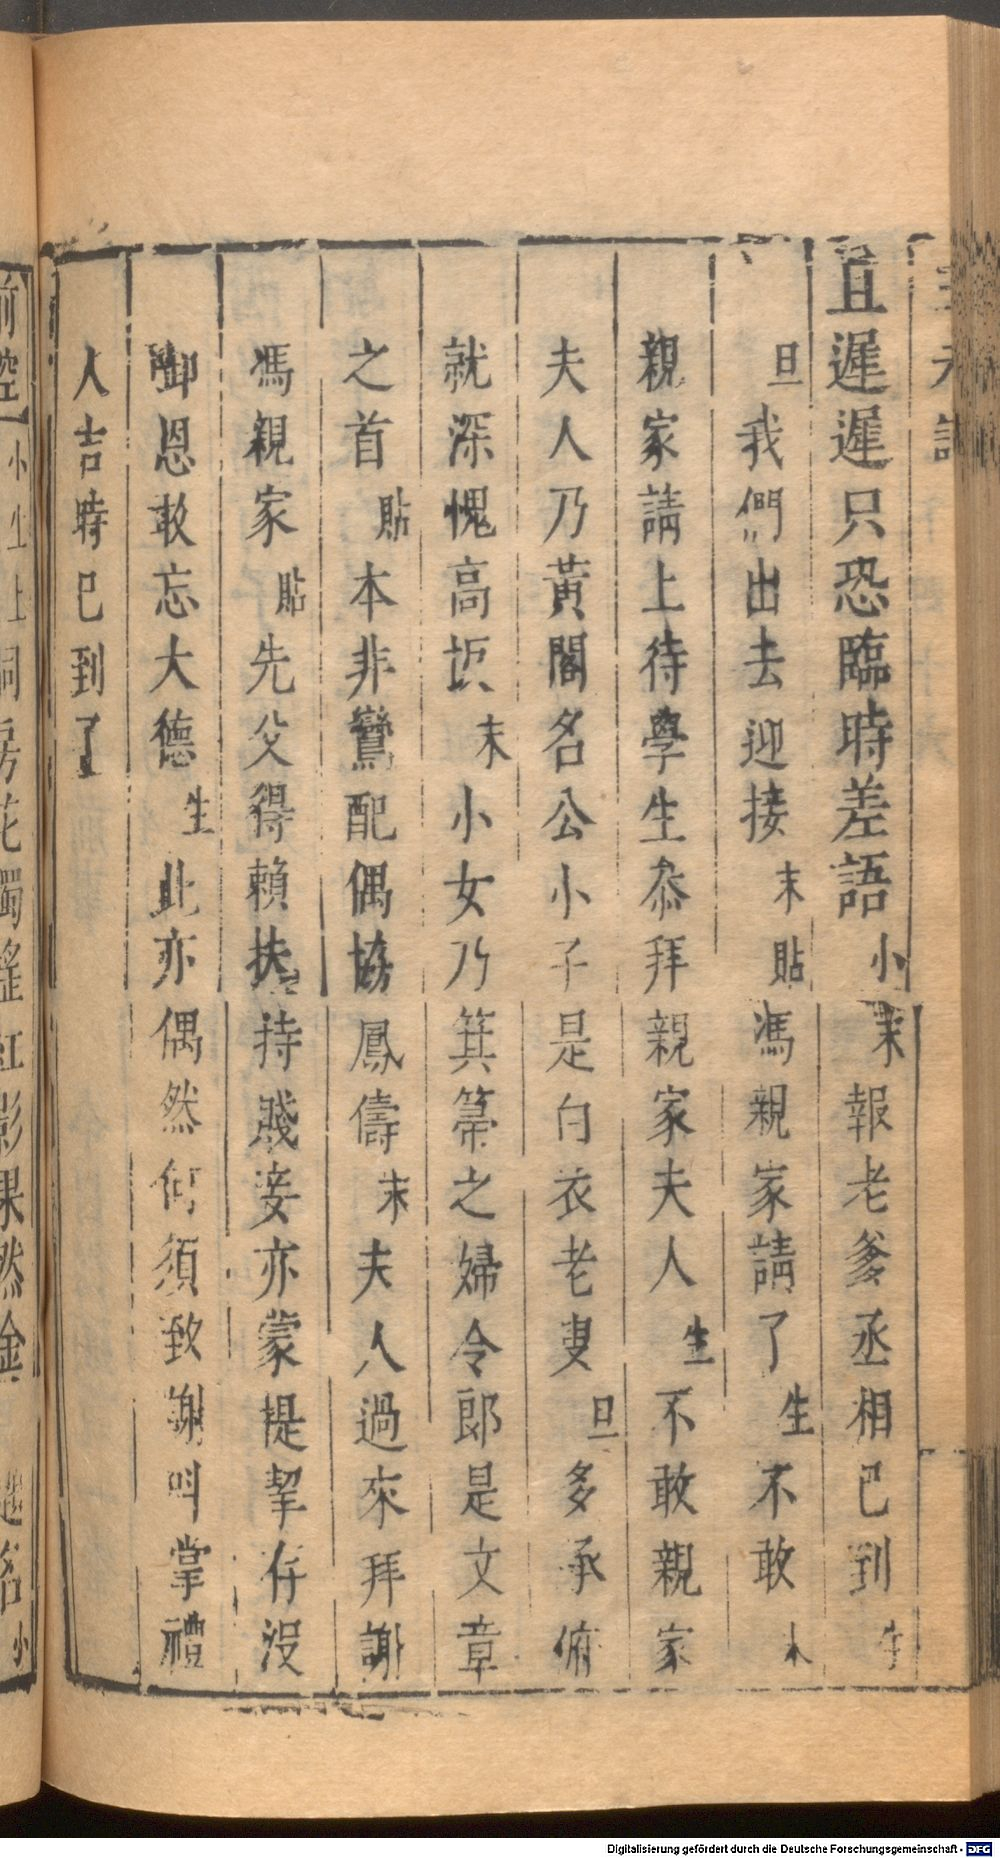 三元記
且遲遲只恐臨時差語小末報老爹丞相巳到生
旦我們出去迎接末貼馮親家請了生不敢末
親家請上待學生叅拜親家夫人生不敢親家
夫人乃黃閣名公小子是白衣老叟旦多承俯
就深愧高扳末小女乃箕箒之婦令郎是文章
之首貼本非鸞配偶協鳳儔末夫人過來拜謝
馮親家貼先父得賴扶持賤妾亦蒙提挈存沒
啣恩敢忘大德生此亦偶然何須致謝呌掌禮
人吉時巳到了
前腔小生上洞房花燭搖紅影果然金題名小
Digitalisierung gefördert durch die Deutsche Forschungsgemeinschaft - DFG